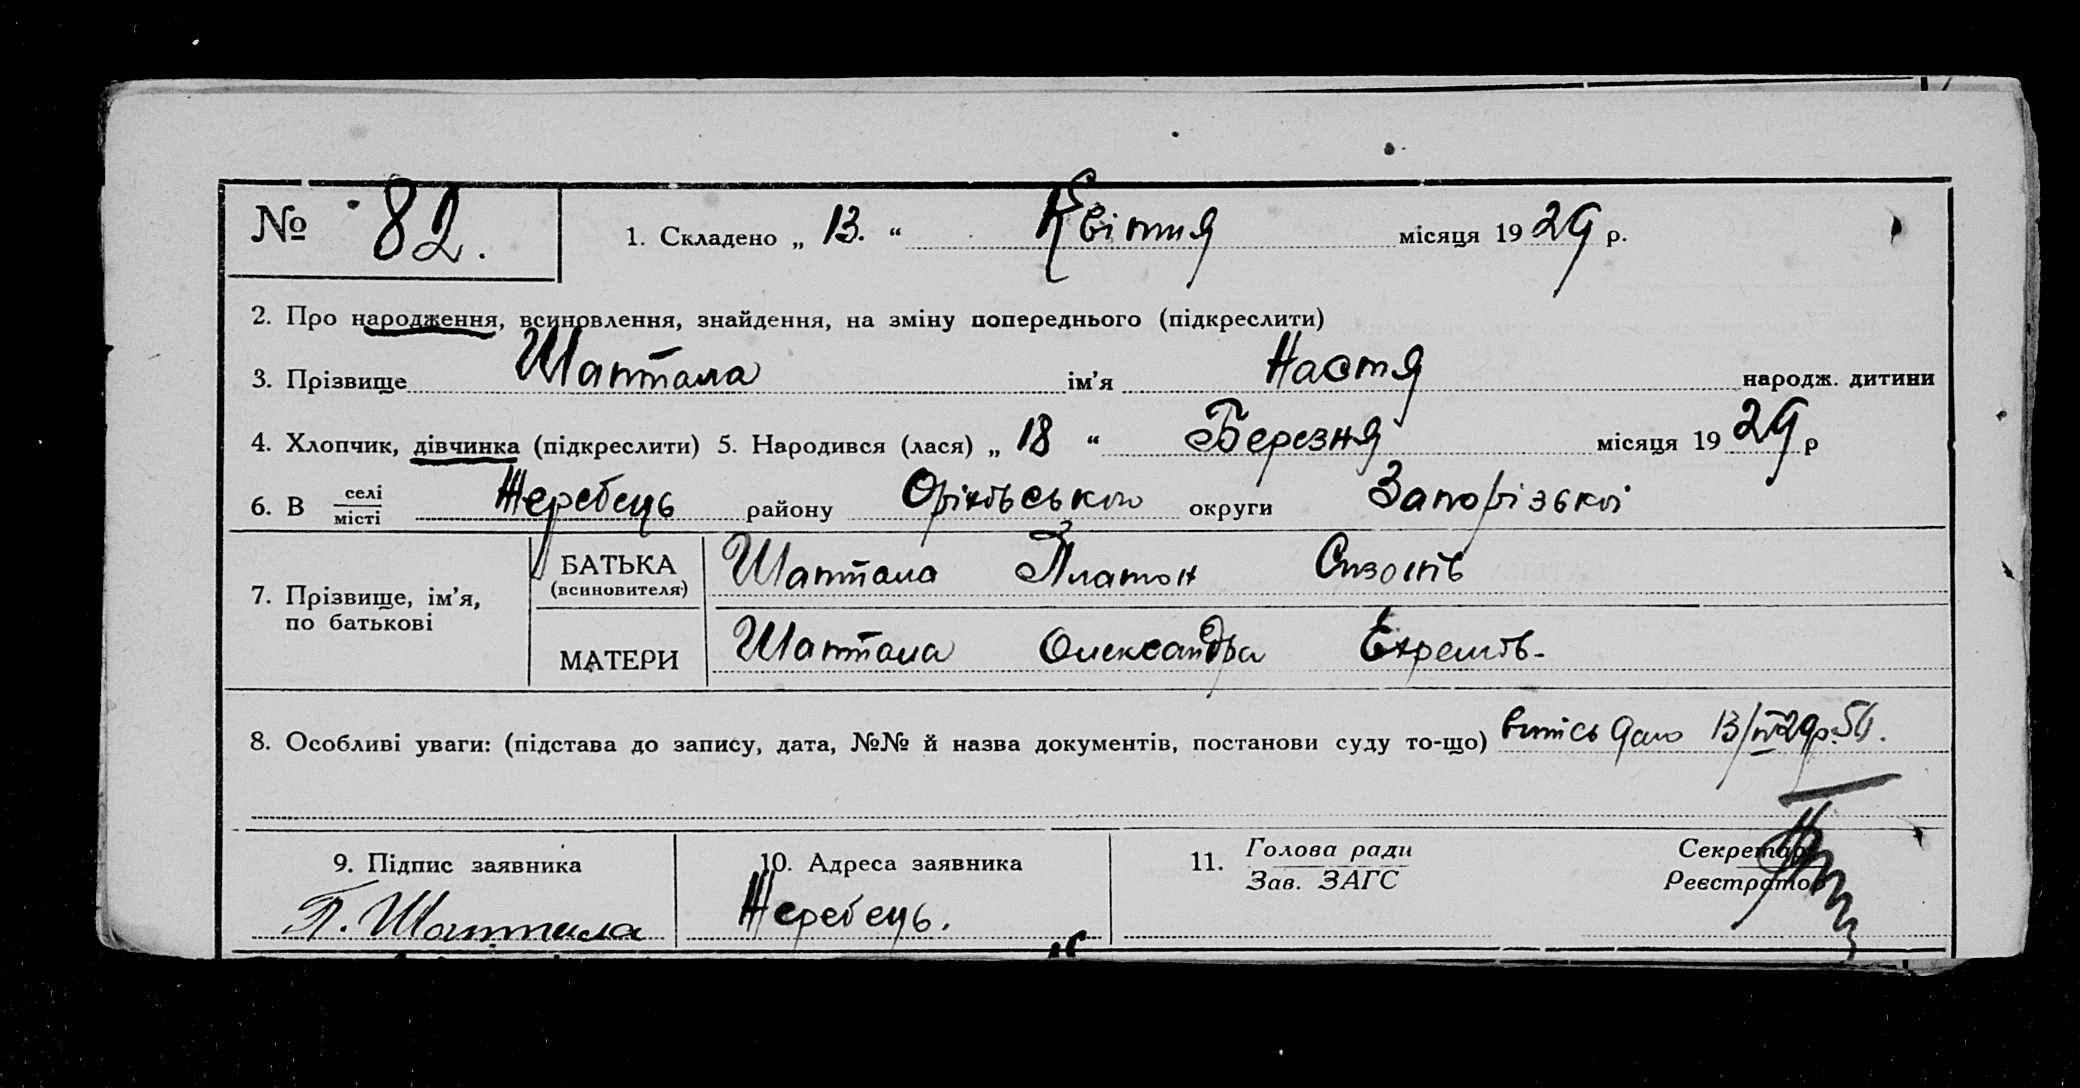 № 82.
1. Складено „ 13. “ Квітня місяця 1929 р.
2. Про народження, всиновлення, знайдення, на зміну попереднього (підкреслити)
3. Прізвище Шаптала ім’я Настя народж. дитини
4. Хлопчик, дівчинка (підкреслити) 5. Народився (лася) „ 18 “ Березня місяця 1929 р
6. В селі місті Жеребець району Оріхівського округи Запорізької
7. Прізвище, ім’я, по батькові
БАТЬКА (всиновителя) Шаптала Платон
МАТЕРИ Шаптала Олександра
8. Особливі уваги: (підстава до запису, дата, №№ й назва документів, постанови суду то-що) витяг дано 13/IV 29р.
9. Підпис заявника
П. Шаптала
10. Адреса заявника
Жеребець.
11. Голова ради
Зав. ЗАГС
Секретар
Реєстратор